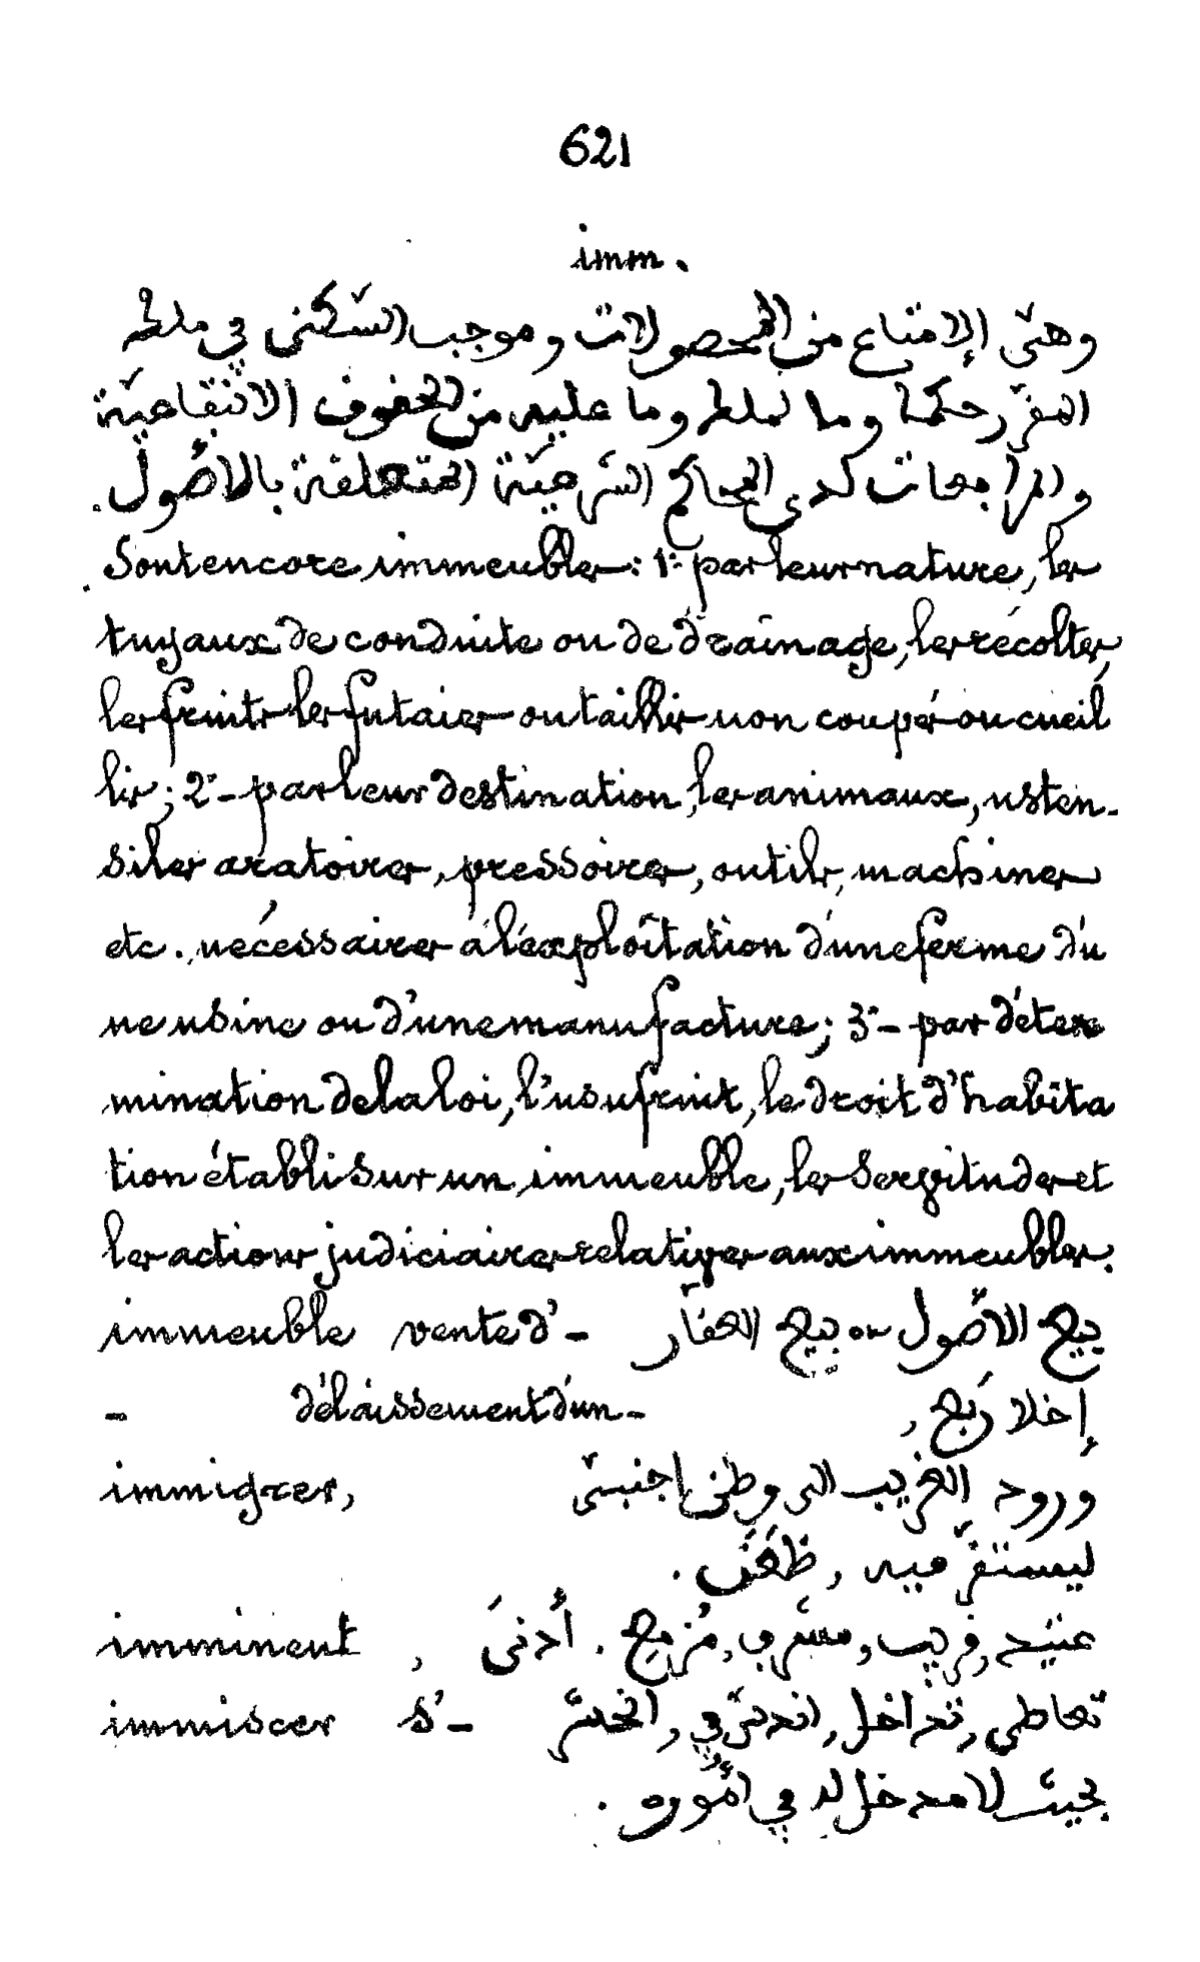 621
imm.
وهي الإمتاع من المحصولات وموجب السكنى في ملك
المقرّ حكمًا وما لملك وما عليه من الحقوق الانتفاعيّة
والمرا جعات لدى المحاكم الشرعيّة المتعلقة بالأصول.
Sont encore immeubles: 1°- par leur nature, les
tuyaux de conduite ou de drainage, les récoltes,
les fruits les futaies ou taillis non coupés ou cueil
lis; 2°- par leur destination, les animaux, usten-
siles aratoires, pressoires, outils, machines
etc., nécessaires à l'exploitation d'une ferme d'u
ne usine ou d'une manufacture; 3°- par déter
mination de la loi, l'usufruit, le droit d'habita
tion établi sur un immeuble, les servitudes et
les actions judiciaires relatives aux immeubles.
immeuble vente d'- بيع الأصول ou بيع العقار
- délaissement d'un - إخلا رَبع,
immigrer, ورود الغريب الى وطن اجنبي
ليستقرّ فيه, ظَعَنَ.
imminent, عتيد, قريب, مشرف, مُزمع. أدنى
immiscer s'- تعاطى, تداخل, اندسّ في, انحشر
بحيث لا مدخل له في أُموره.